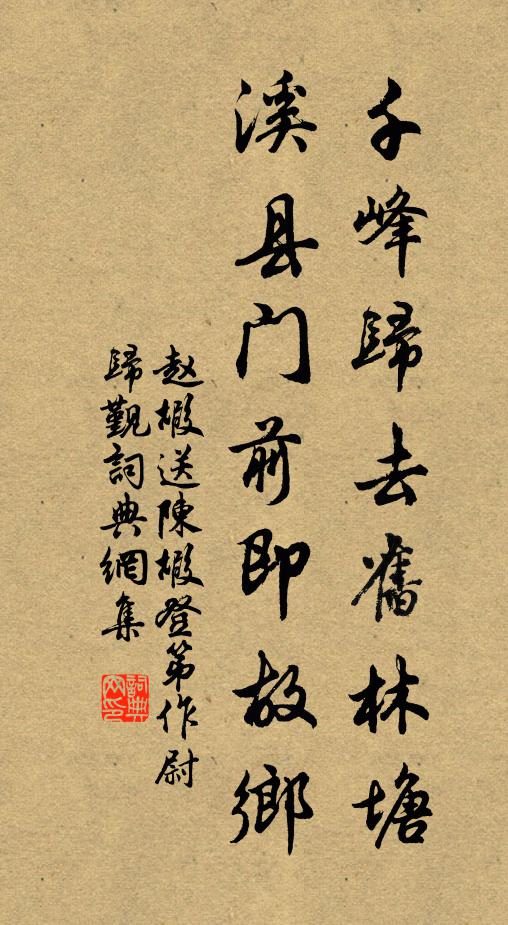 千峰歸去舊林塘
溪县门前即故鄉
赵嘏送陳嘏登第作尉
歸覲詞典網集